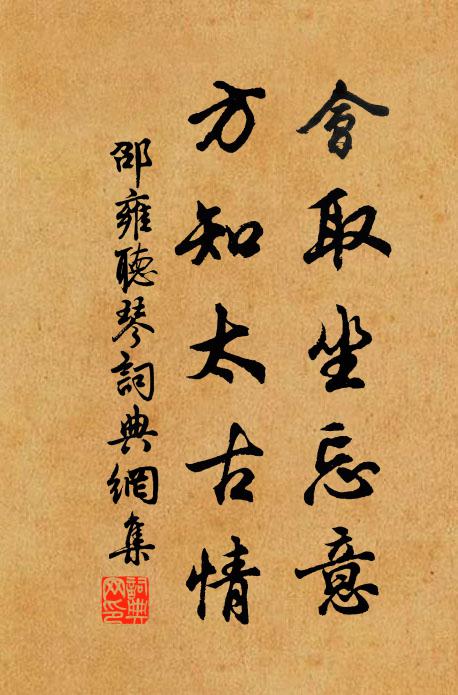 會取坐忘意
方知太古情
邵雍聽琴詞典網集
詞典
网印